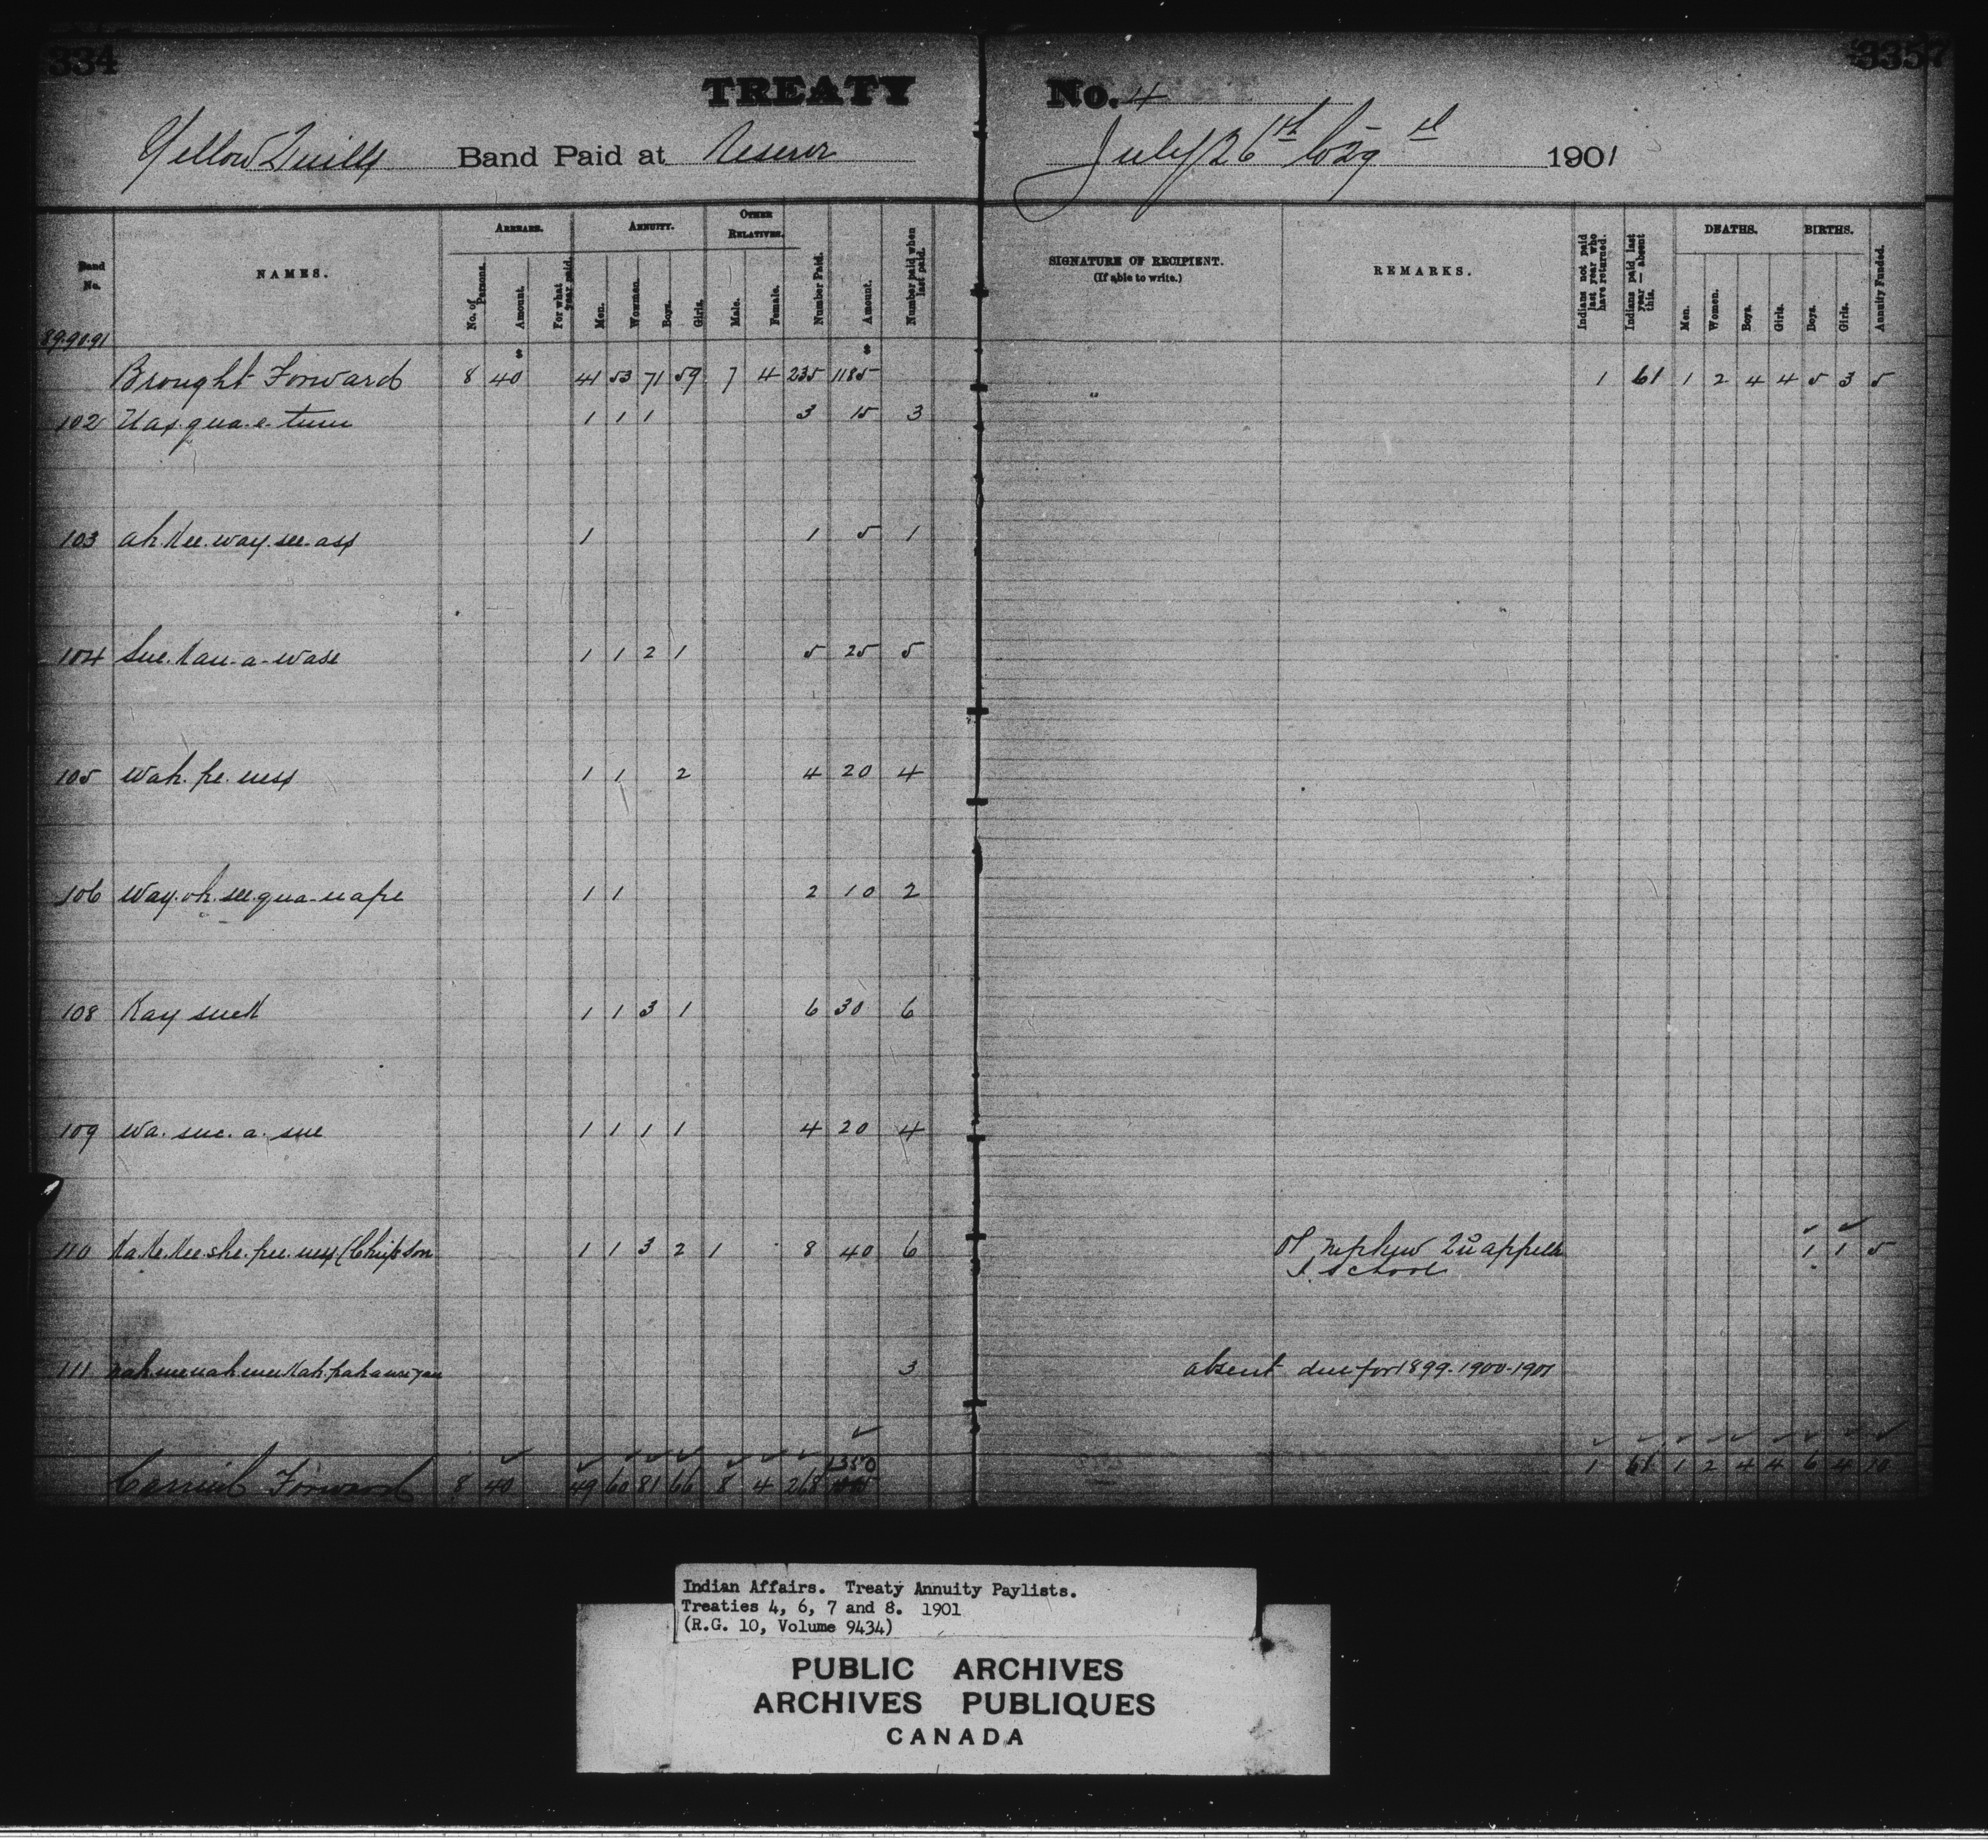 334
3357
TREATY No. 4
Yellow Quills Band Paid at Reserve July 26th to 29 1901
Band No.
NAMES.
ARREARS.
No. of Persons.
Amount.
For what year paid.
ANNUITY.
Men.
Women.
Boys.
Girls.
OTHER RELATIVES.
Male.
Female.
Number Paid.
Amount.
Number paid when last paid.
SIGNATURE OF RECIPIENT.
(If able to write.)
REMARKS.
Indians not paid last year who have returned.
Indians paid last year — absent this.
DEATHS.
Men.
Women.
Boys.
Girls.
BIRTHS.
Boys.
Girls.
Annuity Funded.
89.90.91
$ $
Brought Forward 8 40 41 53 71 59 7 4 235 1185 1 61 1 2 4 4 5 3 5
102 Nas.qua.e.tum 1 1 1 3 15 3
103 ah.Kee.way.see.ass 1 1 5 1
104 Sue.Kau-a-wase 1 1 2 1 5 25 5
105 Wah.pe.ness 1 1 2 4 20 4
106 Way.oh.see.qua-nape 1 1 2 10 2
108 Kay sueK 1 1 3 1 6 30 6
109 Wa.sue.a.sue 1 1 1 1 4 20 4
110 Ka.Ke.Kee.she.pee.ness (Chipson 1 1 3 2 1 8 40 6 Of nephew Qu'appelle 1 1 5
I. School
111 3 absent due for 1899-1900-1901
1350
Carried Forward 8 40 49 60 81 66 8 4 268 1 61 1 2 4 4 6 4 10
Indian Affairs. Treaty Annuity Paylists.
Treaties 4, 6, 7 and 8. 1901
(R.G. 10, Volume 9434)
PUBLIC ARCHIVES
ARCHIVES PUBLIQUES
CANADA